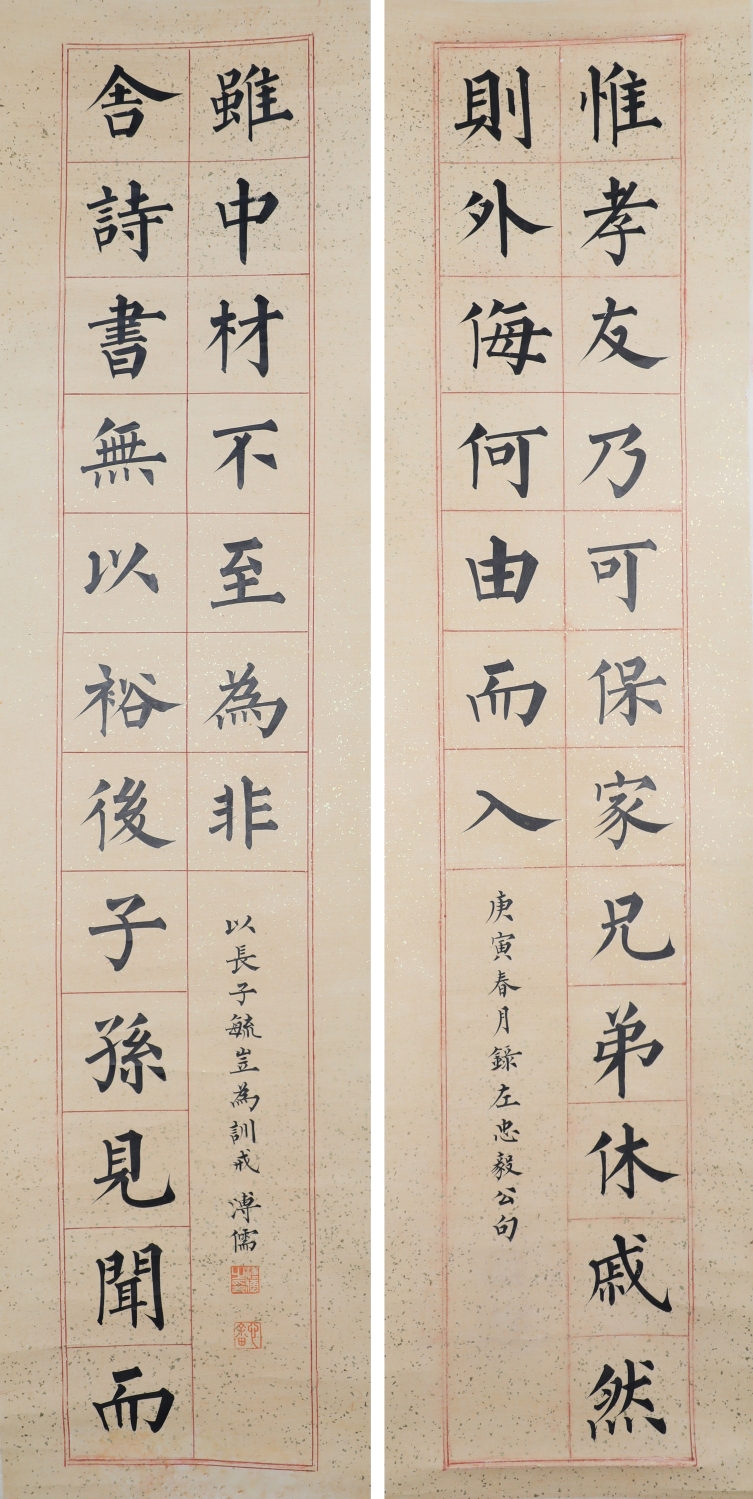 惟孝友乃可保家兄弟休戚然
則外侮何由而入
庚寅春月錄左忠毅公句
舍詩書無以裕後子孫見聞而
雖中材不至為非
以長子毓豈為訓戒 溥儒
溥儒之印
心畬